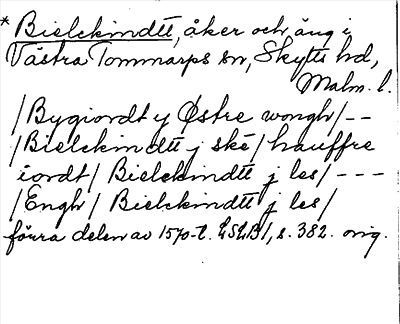 * Bielckindtt, åker och äng i
Västra Tommarps sn, Skytts hd,
Malm. l.
/Bygiordt y Østre wongh/--
/Bielckindtt j ské/hauffre
iordt/ Bielckindtt j les/---
/Engh/ Bielckindtt j les/
förra delen av 1570-t. LSLB1, s. 382. orig.